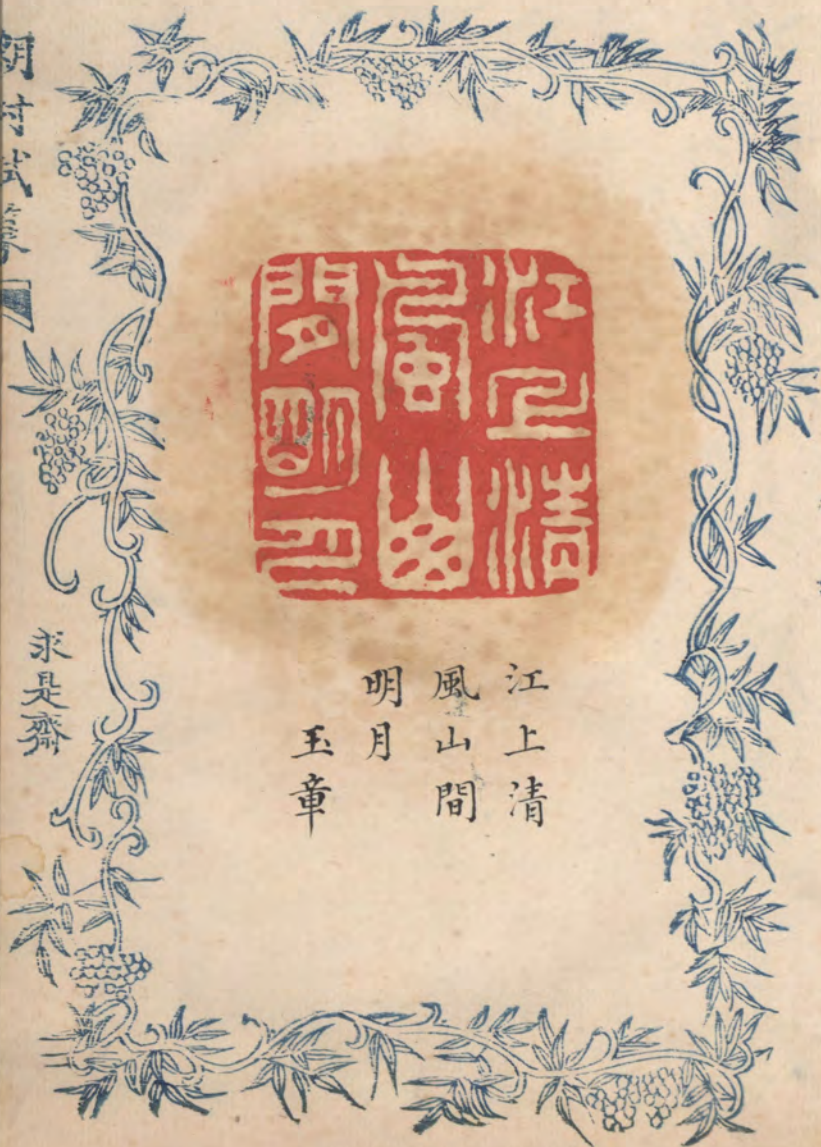 江上清
風山
間明月
江上清
風山間
明月
玉章
求是齋